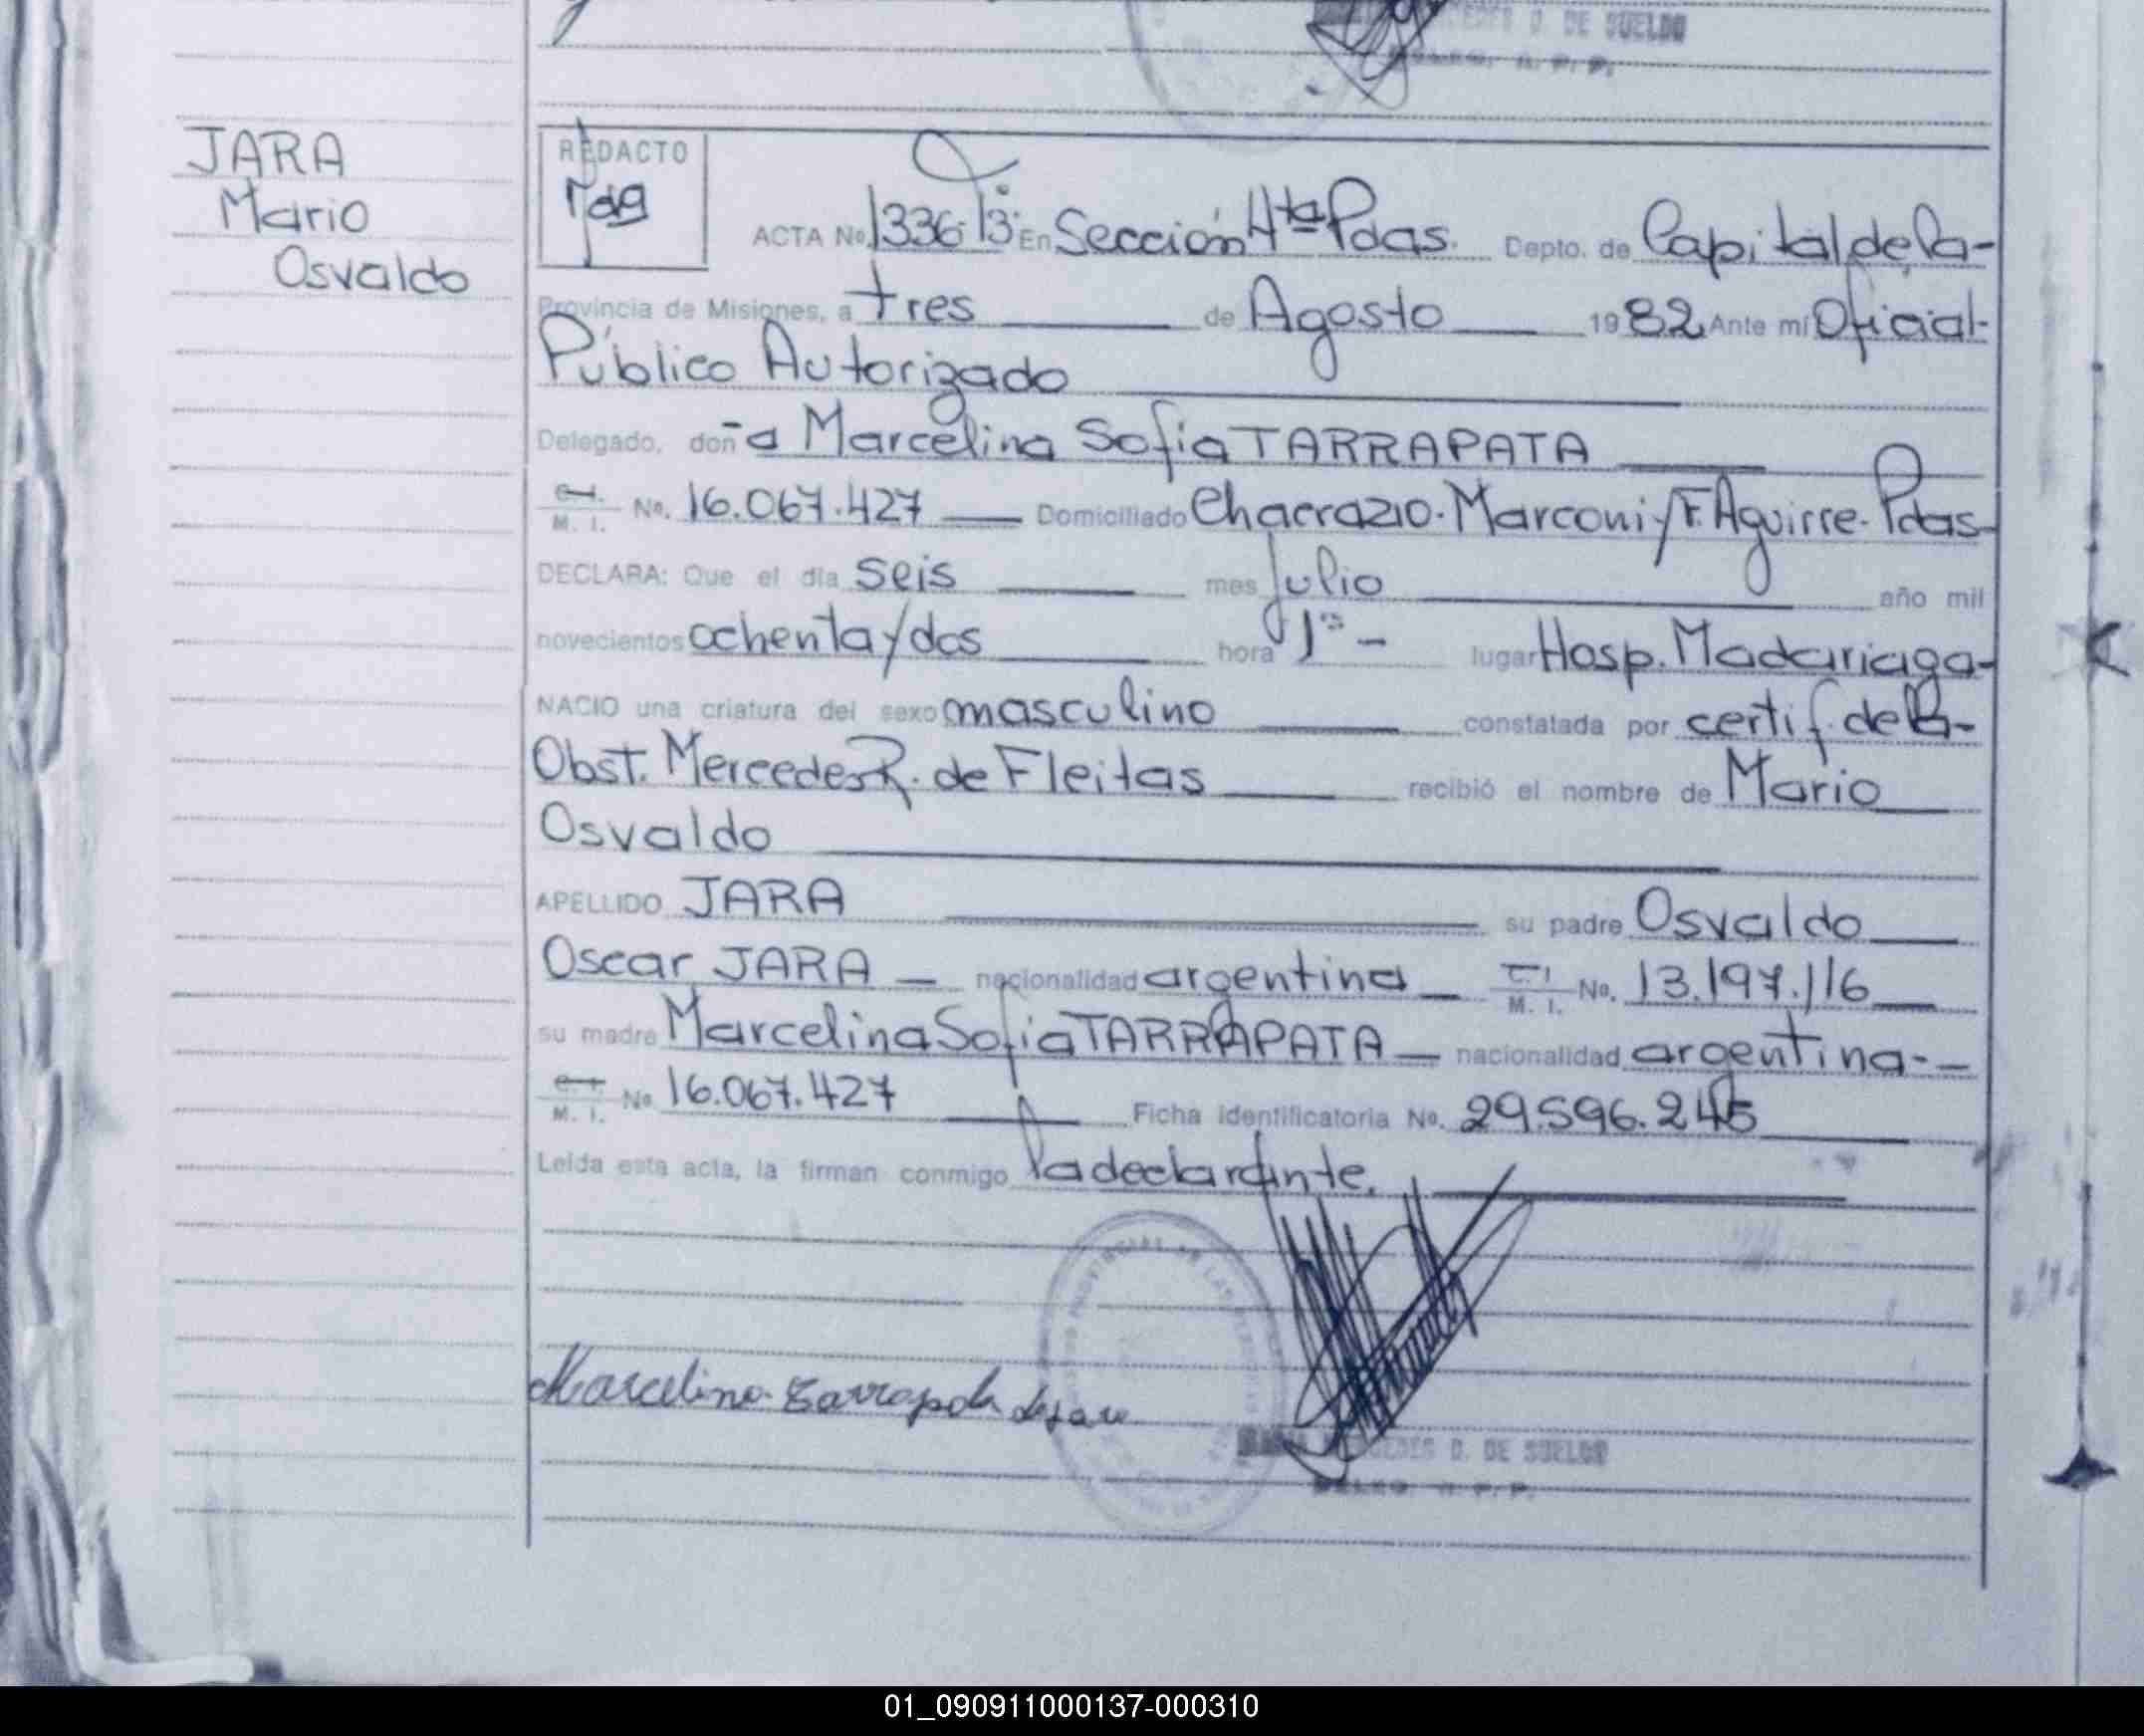 D. DE SUELDO
JARA
Mario
Osvaldo
REDACTO
ACTA No. 1336 Tº 13º En Sección 4ta Pdas. Depto. de Capital de la-
Provincia de Misiones, a tres de Agosto 1982 Ante mí Oficial-
Público Autorizado
Delegado, doña Marcelina Sofia TARRAPATA
M. I. No. 16.067.427 Domiciliado Chacra 210. Marconi y F. Aguirre. Pdas-
DECLARA: Que el día seis mes Julio año mil
novecientos ochenta y dos hora 1ºº - lugar Hosp. Madariaga-
NACIO una criatura del sexo masculino constatada por certif. de la-
Obst. Mercedes R. de Fleitas recibió el nombre de Mario
Osvaldo
APELLIDO JARA su padre Osvaldo
Oscar JARA - nacionalidad argentina - C. I. M. I. No. 13.197.116
su madre Marcelina Sofia TARRAPATA - nacionalidad argentina.-
M. I. No. 16.067.427 Ficha identificatoria No. 29.596.245
Leida esta acta, la firman conmigo la declarante.
Marcelina Tarrapata de Jara
D. DE SUELDO
01_090911000137-000310